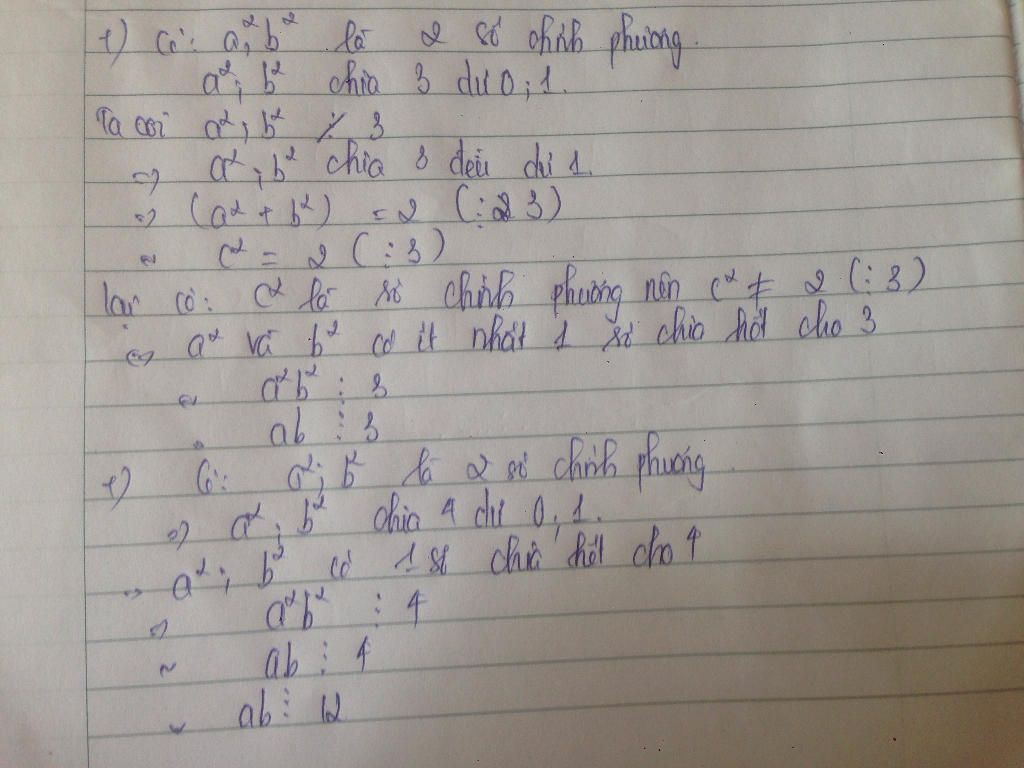 +) Có: a²; b² là 2 số chính phương.
a²; b² chia 3 dư 0; 1.
Ta coi a²; b² ⋮̸ 3
=> a²; b² chia 3 đều dư 1.
=> (a² + b²) = 2 (⋮ 3)
~ c² = 2 (⋮ 3)
lại có: c² là số chính phương nên c² ≠ 2 (⋮ 3)
=> a² và b² có ít nhất 1 số chia hết cho 3
~ a²b² ⋮ 3
ab ⋮ 3
+) Có: a²; b² là 2 số chính phương.
=> a²; b² chia 4 dư 0, 1.
=> a²; b² có 1 số chia hết cho 4
=> a²b² ⋮ 4
~ ab ⋮ 4
ab ⋮ 12